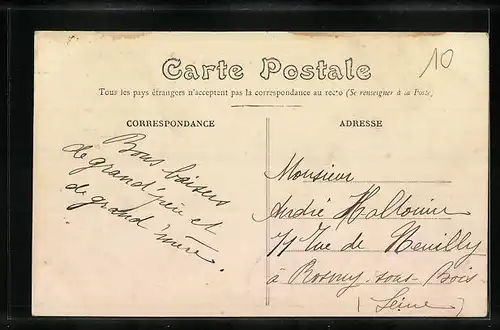 10
Carte Postale
Tous les pays étrangers n'acceptent pas la correspondance au recto (Se renseigner à la Poste)
CORRESPONDANCE
ADRESSE
Bons baisers
de grand'père et
de grand'mère.
Monsieur
André
Rue de Neuilly
à Rosny-sous-Bois
(Seine)